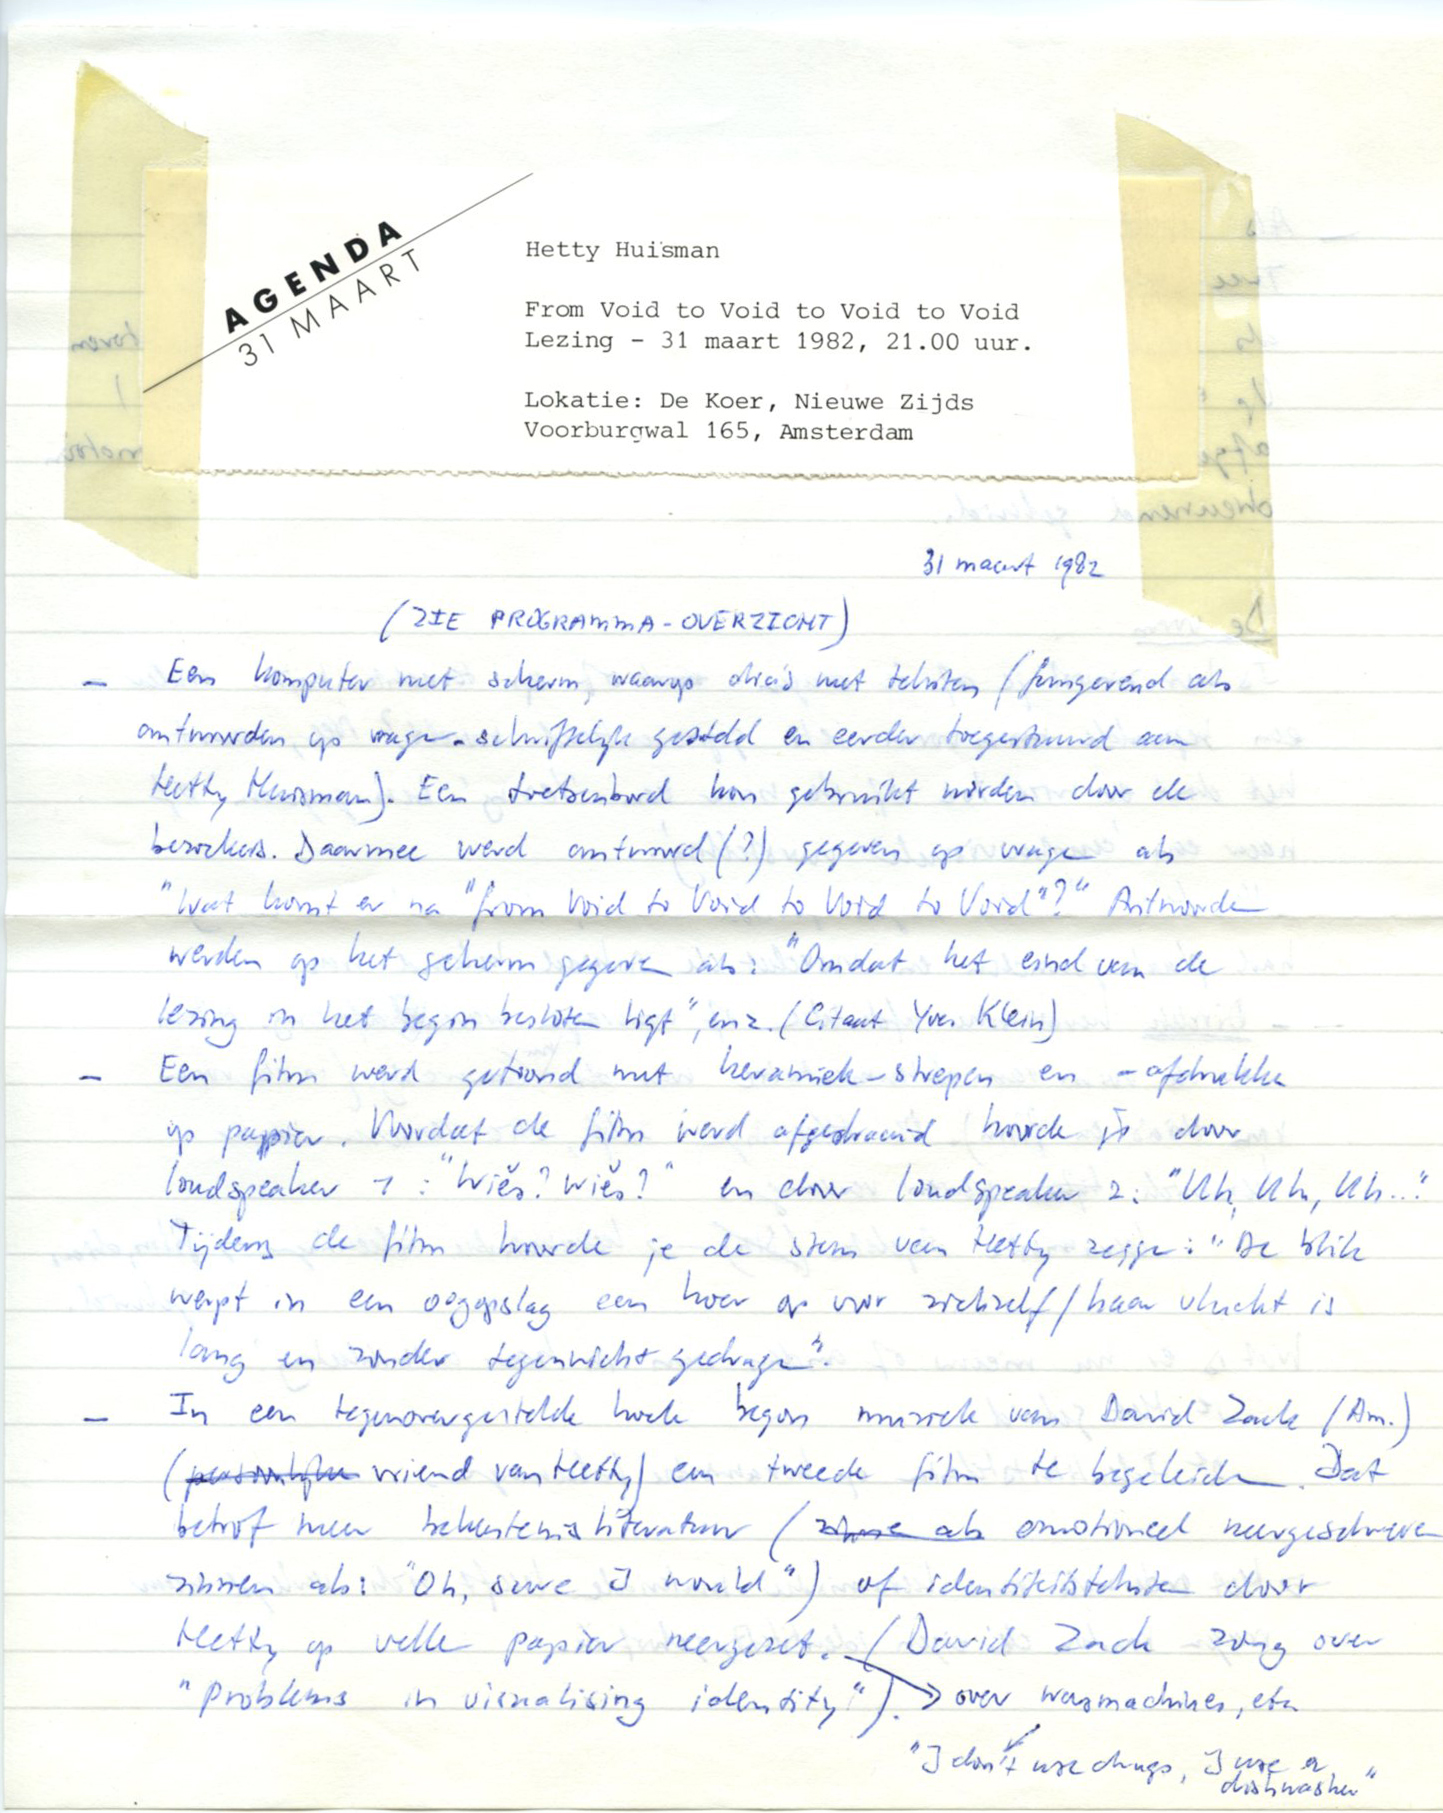 AGENDA
31 MAART
Hetty Huisman
From Void to Void to Void to Void
Lezing - 31 maart 1982, 21.00 uur.
Lokatie: De Koer, Nieuwe Zijds
Voorburgwal 165, Amsterdam
31 maart 1982
(ZIE PROGRAMMA-OVERZICHT)
— Een komputer met scherm, waarop dia's met teksten (fungerend als
antwoorden, op vragen schriftelijk gesteld en eerder toegestuurd aan
Hetty Huisman). Een toetsenbord kon gebruikt worden door de
bezoekers. Daarmee werd antwoord (?) gegeven op vragen als
"Wat komt er na "from Void to Void to Void to Void"?" Antwoorden
werden op het scherm gegeven als: "Omdat het eind van de
lezing in het begin besloten ligt", enz. (Citaat Yves Klein)
— Een film werd getoond met keramiek-strepen en -afdrukken
op papier. Voordat de film werd afgedraaid hoorde je door
loudspeaker 1: "Wiès? Wiès?" en door loudspeaker 2: "Uh, Uh, Uh..."
Tijdens de film hoorde je de stem van Hetty zeggen: "De blik
werpt in een oogopslag een hoer op voor zichzelf/haar vlucht is
lang en zonder tegenwicht gedragen".
— In een tegenovergestelde hoek begon muziek van David Zack (Am.)
(persoonlijke vriend van Hetty) een tweede film te begeleiden. Dat
betrof meer bekentenisliteratuur (zinnen als emotioneel neergeschreven
zinnen als: "Oh, sure I would") of identiteitsteksten door
Hetty op vellen papier neergezet. (David Zack zong over
"Problems in visualising identity"). → over wasmachines, etc
"I don't use drugs, I use a
dishwasher"